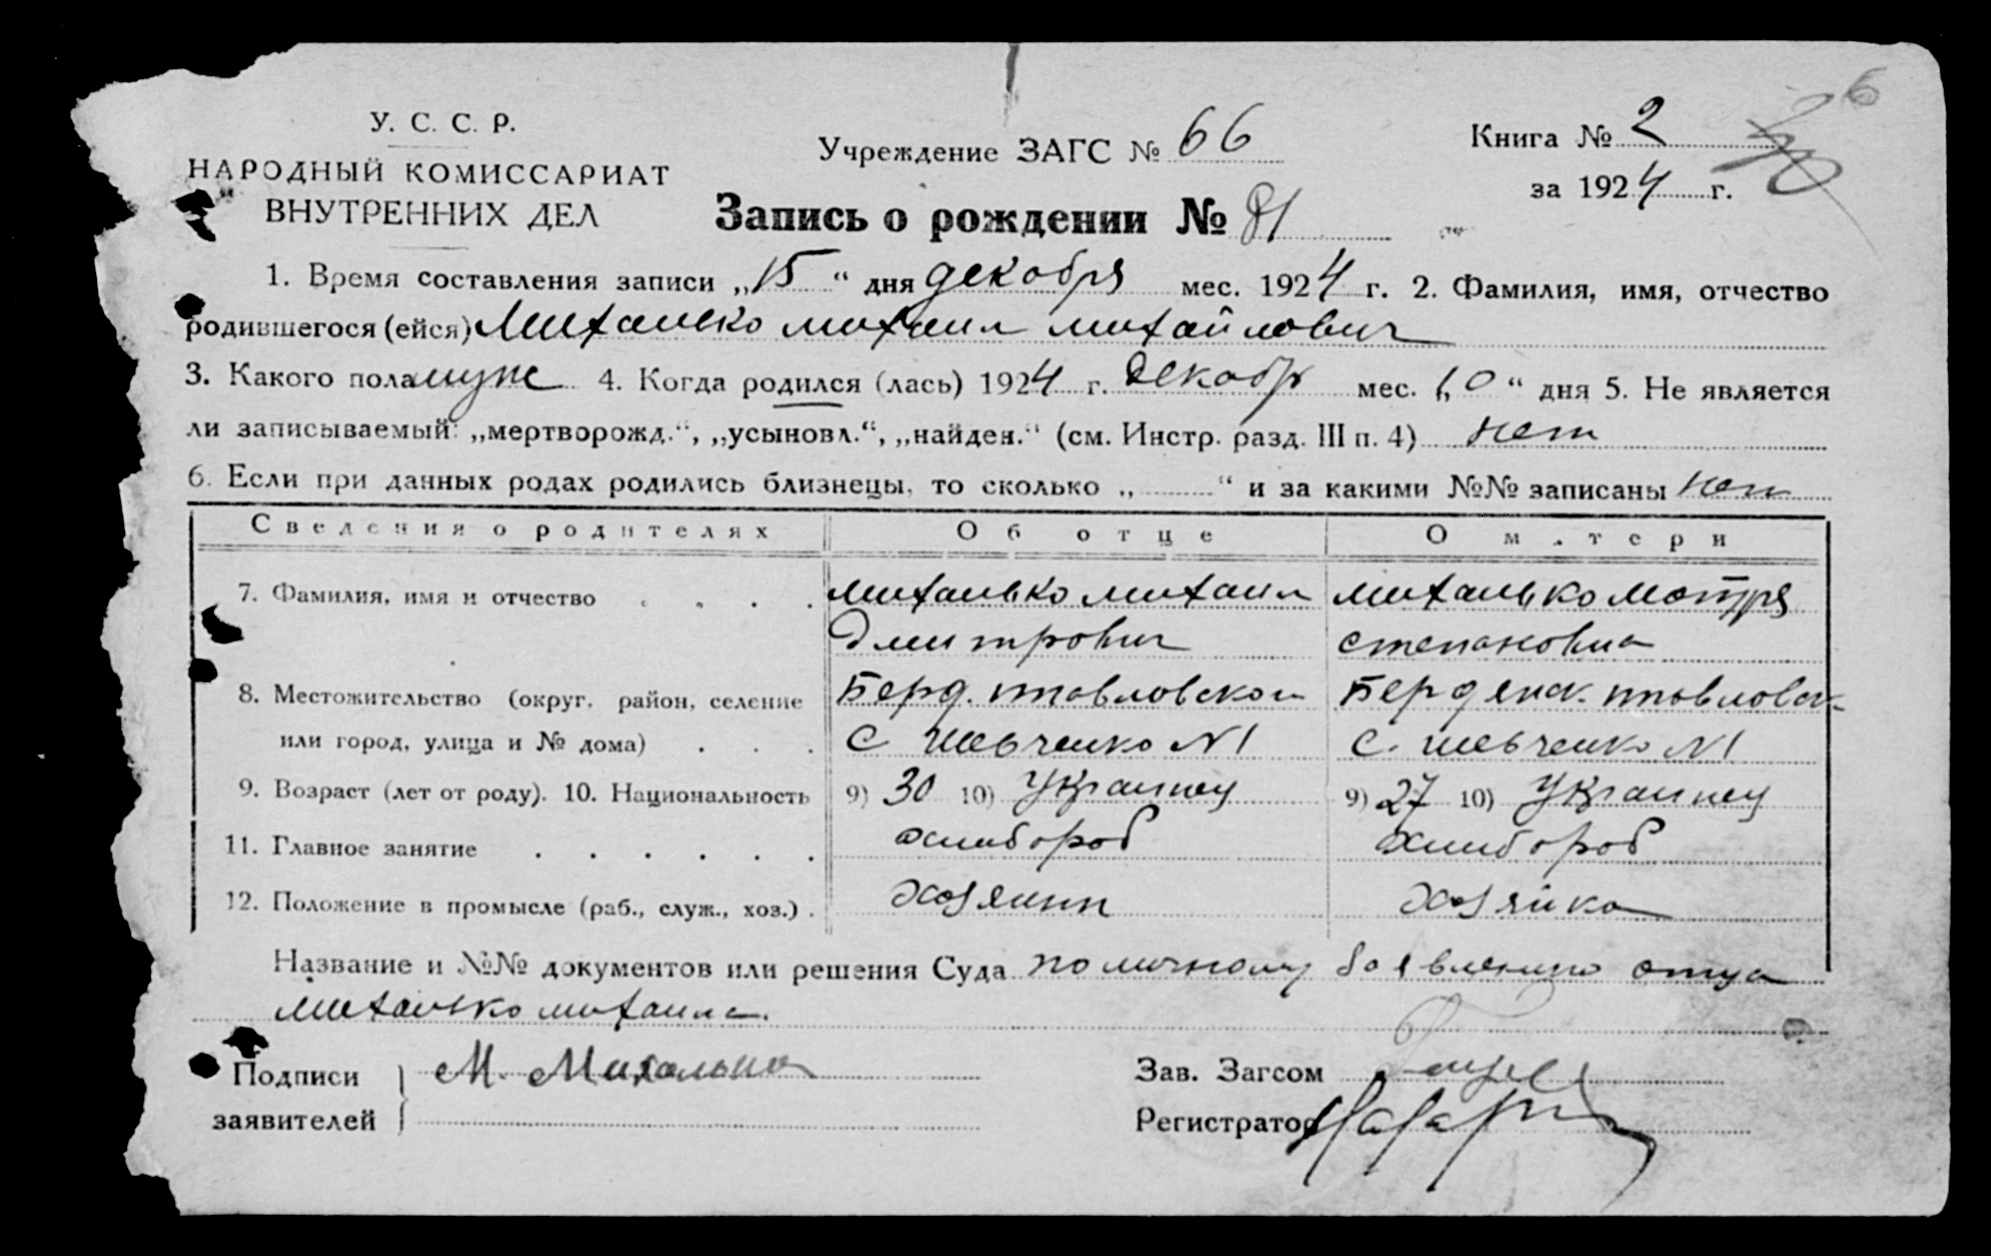 6
У. С. С. Р.
НАРОДНЫЙ КОМИССАРИАТ
ВНУТРЕННИХ ДЕЛ
Учреждение ЗАГС № 66
Книга № 2
за 1924 г.
Запись о рождении № 81
1. Время составления записи „15“ дня декобря мес. 1924 г. 2. Фамилия, имя, отчество
родившегося (ейся) Михалько михаил михайлович
3. Какого пола муж 4. Когда родился (лась) 1924 г. декобр мес. „10“ дня 5. Не является
ли записываемый: „мертворожд.“, „усыновл.“, „найден.“ (см. Инстр. разд. III п. 4) нет
6. Если при данных родах родились близнецы, то сколько „ “ и за какими №№ записаны нет
Сведения о родителях Об отце О матери
7. Фамилия, имя и отчество михалько михаил михалько мотря
Дмитрович степановна
8. Местожительство (округ, район, селение Берд. Павловской Бердянск. Павловск.
или город, улица и № дома) с шевченко N1 с. шевченко N1
9. Возраст (лет от роду). 10. Национальность 9) 30 10) Украинец 9) 27 10) Украинец
11. Главное занятие хлибороб хлибороб
12. Положение в промысле (раб., служ., хоз.) хозяин хозяйка
Название и №№ документов или решения Суда по личному заявлению отца
михалько михаила.
Подписи М. Михалько Зав. Загсом
заявителей Регистратор